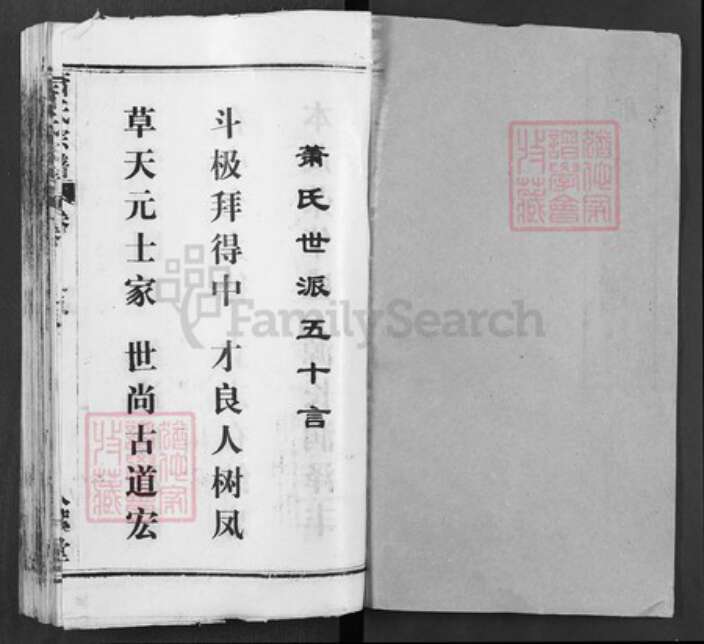 萧氏世派五十言
斗极拜得中 才良人树凤
草天元士家 世尚古道宏
FamilySearch